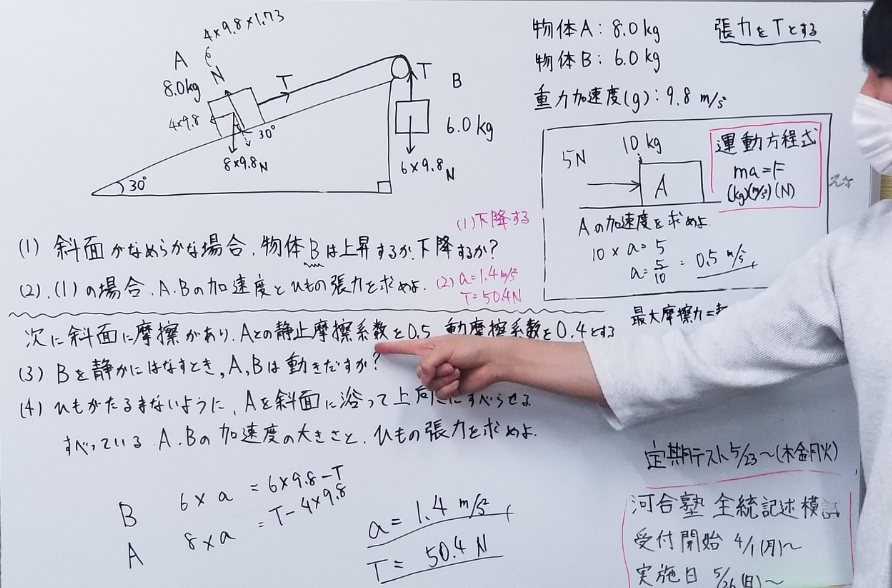 4×9.8×1.73
A
8.0kg
N
T
4×9.8
A
30°
8×9.8N
30°
T
B
6.0kg
6×9.8N
物体A：8.0kg
物体B：6.0kg
重力加速度(g)：9.8 m/s²
張力をTとする
5N
10 kg
A
運動方程式
ma=F
(kg)(m/s²)(N)
Aの加速度を求めよ
10×a=5
a=5/10=0.5 m/s²
(1) 斜面がなめらかな場合、物体Bは上昇するか、下降するか?
(1)下降する
(2). (1)の場合、A.Bの加速度とひもの張力を求めよ.
(2) a=1.4m/s²
T=50.4N
次に斜面に摩擦があり、Aとの静止摩擦系数を0.5 動摩擦系数を0.4とする
最大摩擦力=
(3) Bを静かにはなすとき、A,Bは動きだすか?
(4) ひもがたるまないように、Aを斜面に浴って上向きにすべらせる
すべっている A.Bの加速度の大きさと、ひもの張力を求めよ.
B 6×a=6×9.8-T
A 8×a=T-4×9.8
a=1.4 m/s²
T=50.4 N
定期テスト5/23～(木金月火)
河合塾 全統記述模試
受付開始 4/1(月)～
実施日 5/26(日)～